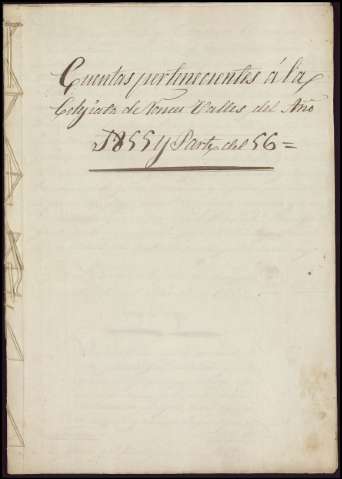 Cuentas pertenecientes á la
Colejiata de Ronces Valles del Año
1855 y Parte del 56=